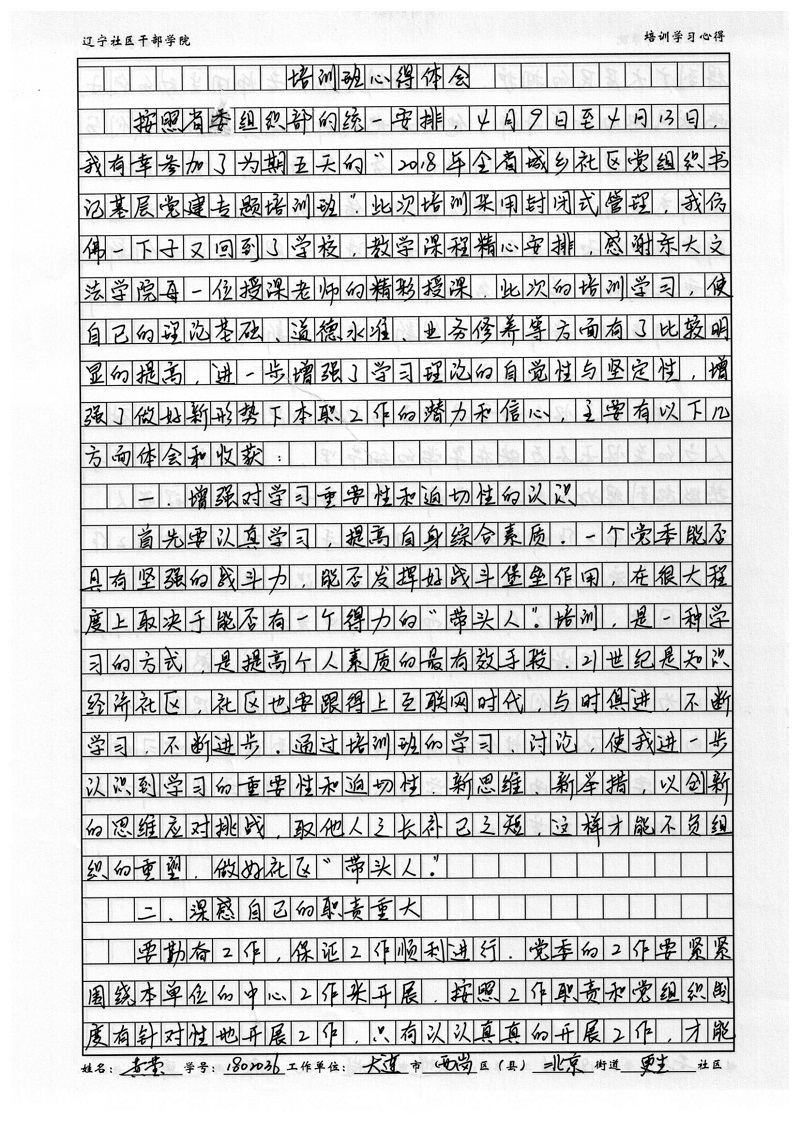 辽宁社区干部学院 培训学习心得
培训班心得体会
按照省委组织部的统一安排，4月9日至4月13日，
我有幸参加了为期五天的“2018年全省城乡社区党组织书
记基层党建专题培训班”。此次培训采用封闭式管理，我仿
佛一下子又回到了学校，教学课程精心安排，感谢东大文
法学院每一位授课老师的精彩授课。此次的培训学习，使
自己的理论基础、道德水准、业务修养等方面有了比较明
显的提高，进一步增强了学习理论的自觉性与坚定性，增
强了做好新形势下本职工作的潜力和信心，主要有以下几
方面体会和收获：
一、增强对学习重要性和迫切性的认识
首先要认真学习，提高自身综合素质。一个党委能否
具有坚强的战斗力，能否发挥好战斗堡垒作用，在很大程
度上取决于能否有一个得力的“带头人”。培训，是一种学
习的方式，是提高个人素质的最有效手段。21世纪是知识
经济社区，社区也要跟得上互联网时代，与时俱进，不断
学习、不断进步。通过培训班的学习、讨论，使我进一步
认识到学习的重要性和迫切性。新思维、新举措，以创新
的思维应对挑战，取他人之长补己之短，这样才能不负组
织的重望，做好社区“带头人”。
二、深感自己的职责重大
要勤奋工作，保证工作顺利进行。党委的工作要紧紧
围绕本单位的中心工作来开展，按照工作职责和党组织制
度有针对性地开展工作，只有认认真真的开展工作，才能
姓名：黄莹 学号：1802036 工作单位：大连 市 西岗 区（县） 北京 街道 更生 社区